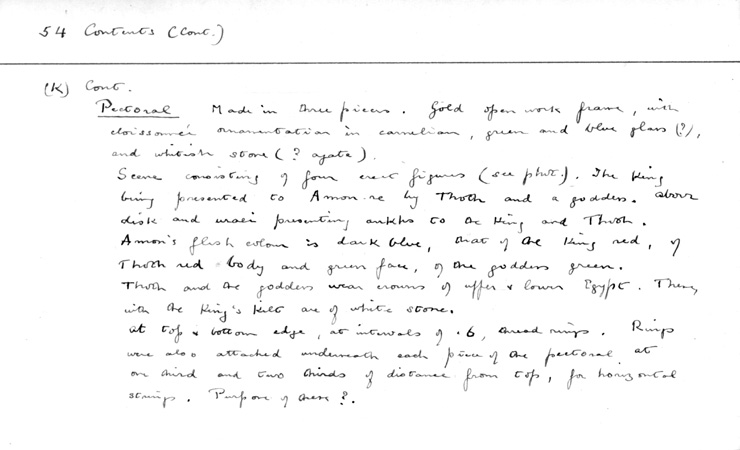 54 Contents (Cont.)
(K) Cont.
Pectoral Made in three pieces. Gold open work frame, with
cloissonnéi ornamentation in carnelian, green and blue glass (?),
and whitish stone (? agate).
Scene consisting of four erect figures (see phot.). The King
being presented to Amon-re by Thoth and a goddess. above
disk and uraei presenting ankhs to the King and Thoth.
Amon's flesh colour is dark blue, that of the King red, of
Thoth red body and green face, of the goddess green.
Thoth and the goddess wear crowns of upper & lower Egypt. These,
with the King's kilt are of white stone.
At top & bottom edge, at intervals of .6, thread rings. Rings
were also attached underneath each piece of the pectoral at
one third and two thirds of distance from top, for horizontal
strings. Purpose of these?.